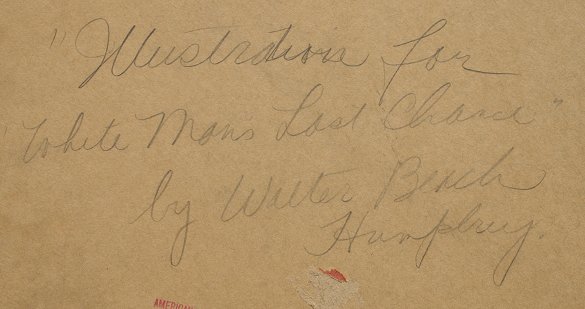 "Illustration for
"White Mans Last Chance"
by Walter Beach
Humphrey.
AMERICAN